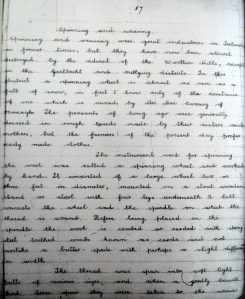 17
Spinning and weaving
Spinning and weaving were great industries in Ireland
in former times, but they have now been almost
destroyed by the advent of the woollen mills, except
in the Gaeltacht and outlying districts. In this
district a spinning wheel is almost as rare as a
fall of snow, in fact I know only of the existence
of one which is owned by Mrs
The peasants of long ago were generally
dressed in rough tweeds made by their sisters and
mothers, but the farmers of the present day prefer
ready made clothes.
The instrument used for spinning
the wool was called a spinning wheel and worked
by hand. It consisted of a large wheel two or
three feet in diameter, mounted on a stout wooden
stand or stool with four legs underneath. A belt
connects the wheel and the spindle on which the
thread is wound. Before being placed on the
spindle the wool is combed or carded with long
steel toothed combs known as cards and not
unlike a butter spade with perhaps a slight difference
in width.
The thread was spun into soft light
balls of various sizes, and when a goodly
they were to the weaver